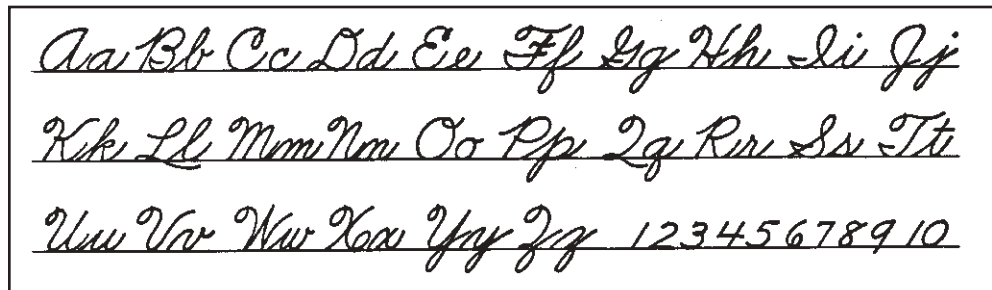 Aa Bb Cc Dd Ee Ff Gg Hh Ii Jj
Kk Ll Mm Nn Oo Pp Qq Rr Ss Tt
Uu Vv Ww Xx Yy Zz 1 2 3 4 5 6 7 8 9 10